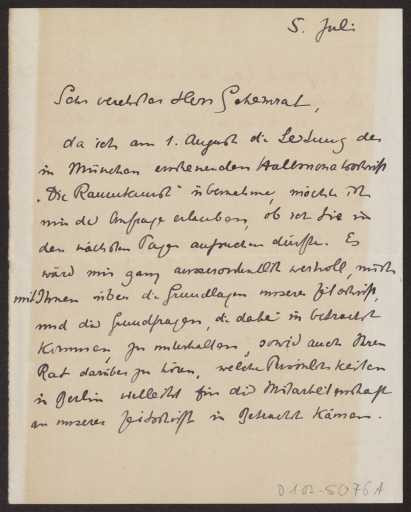 5. Juli
Sehr verehrter Herr Geheimrat,
da ich am 1. August die Leitung der
in München erscheinenden Halbmonatsschrift
„Die Raumkunst" übernehme, möchte ich
mir die Anfrage erlauben, ob ich Sie in
den nächsten Tagen aufsuchen dürfte. Es
wäre mir ganz ausserordentlich wertvoll, mich
mit Ihnen über die Grundlagen unserer Zeitschrift,
und die Grundfragen, die dabei in betracht
kommen, zu unterhalten, sowie auch Ihren
Rat darüber zu hören, welche Persönlichkeiten
in Berlin vielleicht für die Mitarbeiterschaft
an unserer Zeitschrift in Betracht kämen.